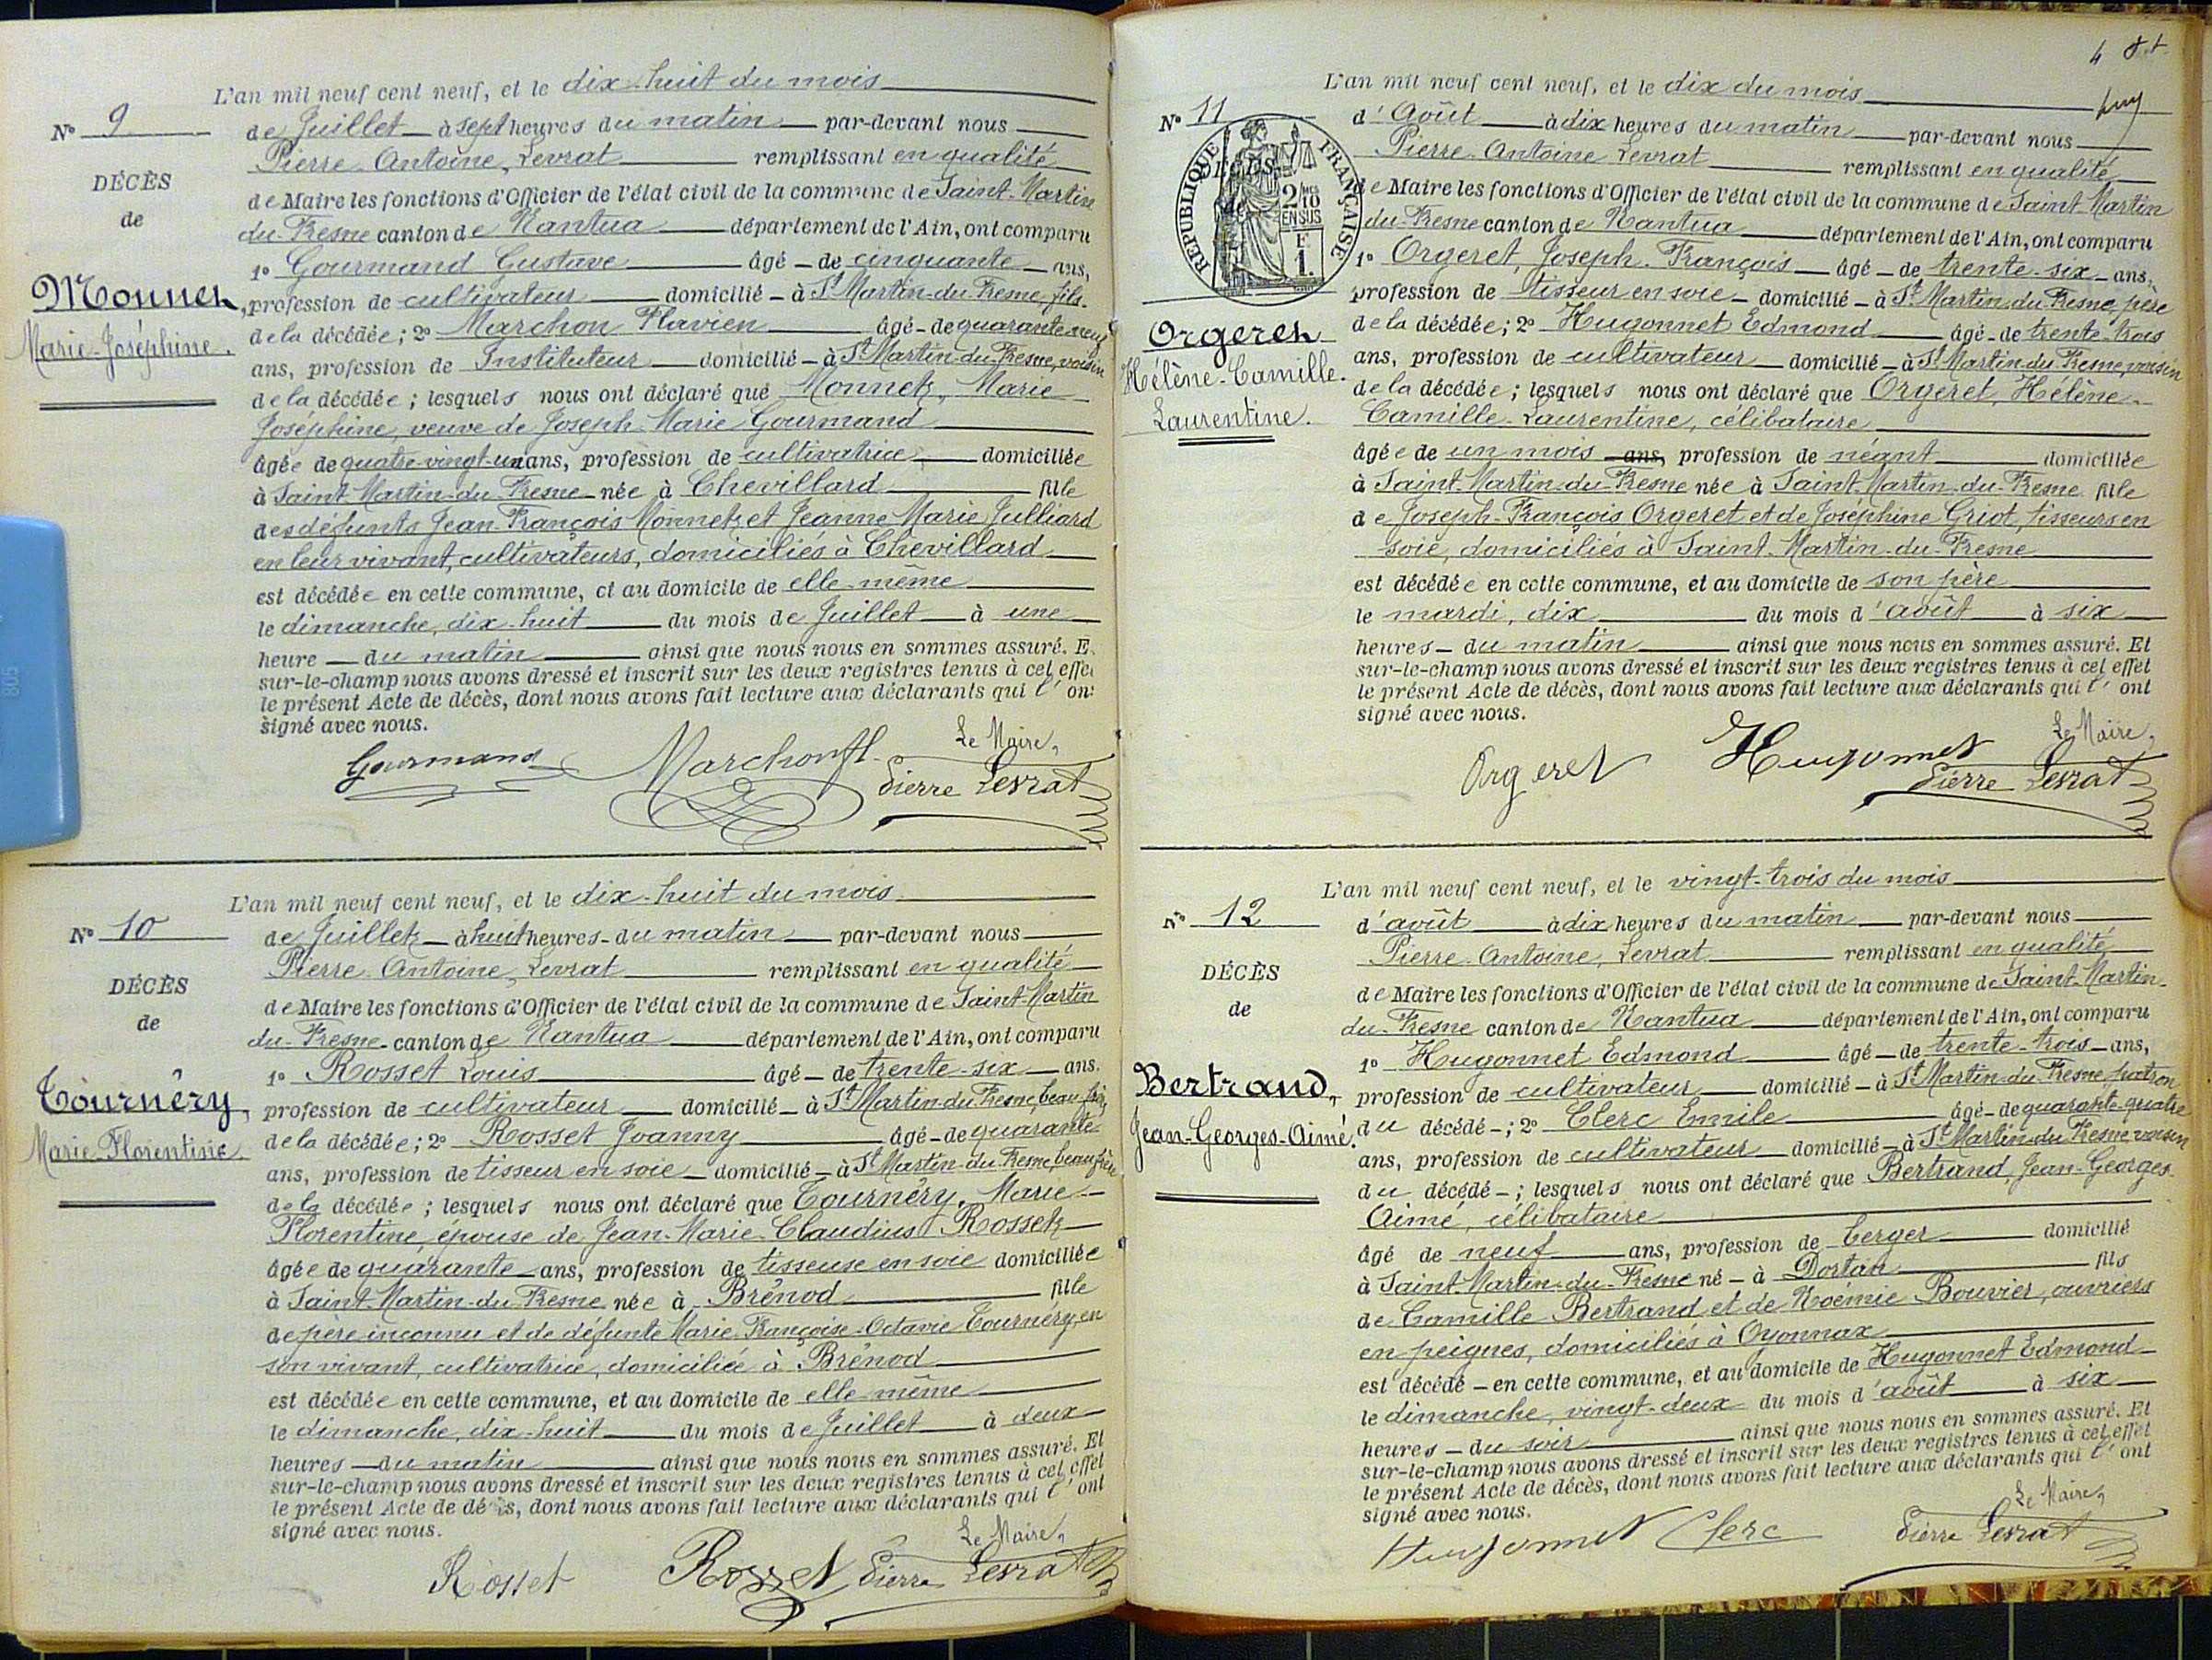 L'an mil neuf cent neuf, et le dix-huit du mois
N° 9
de Juillet à sept heures du matin par-devant nous
Pierre-Antoine, Levrat remplissant en qualité
DÉCÈS
de Maire les fonctions d'Officier de l'état civil de la commune de Saint-Martin
de
du-Fresne canton de Nantua département de l'Ain, ont comparu
1° Gourmand Gustave âgé - de cinquante ans,
Monnet,
profession de cultivateur domicilié - à St Martin-du-Fresne, fils
Marie-Joséphine.
de la décédée; 2° Marchon Flavien âgé - de quarante neuf
ans, profession de Instituteur domicilié - à St Martin-du-Fresne, voisin
de la décédée; lesquels nous ont déclaré que Monnet, Marie
Joséphine, veuve de Joseph-Marie Gourmand
âgée de quatre-vingt-un ans, profession de cultivatrice domiciliée
à Saint-Martin-du-Fresne née à Chevillard fille
des défunts Jean-François Monnet et Jeanne Marie Julliard
en leur vivant, cultivateurs, domiciliés à Chevillard
est décédée en cette commune, et au domicile de elle-même
le dimanche, dix-huit du mois de Juillet à une
heure du matin ainsi que nous nous en sommes assuré. E
sur-le-champ nous avons dressé et inscrit sur les deux registres tenus à cet effe
le présent Acte de décès, dont nous avons fait lecture aux déclarants qui l'on
signé avec nous.
Le Maire,
Gourmand Marchon fl. Pierre Levrat
L'an mil neuf cent neuf, et le dix-huit du mois
N° 10
de Juillet à huit heures - du matin par-devant nous
Pierre-Antoine, Levrat remplissant en qualité
DÉCÈS
de Maire les fonctions d'Officier de l'état civil de la commune de Saint-Martin
de
du-Fresne canton de Nantua département de l'Ain, ont comparu
1° Rosset Louis âgé - de trente-six ans.
Tournéry,
profession de cultivateur domicilié - à St Martin-du-Fresne, beau-frère
Marie-Florentine.
de la décédée; 2° Rosset Joanny âgé - de quarante
ans, profession de tisseur en soie domicilié - à St Martin-du-Fresne, beau-frère
de la décédée; lesquels nous ont déclaré que Tournéry, Marie-
Florentine, épouse de Jean-Marie-Claudius Rosset
âgée de quarante ans, profession de tisseuse en soie domiciliée
à Saint-Martin-du-Fresne née à Brénod fille
de père inconnu et de défunte Marie-Françoise-Octavie Tournéry, en
son vivant, cultivatrice, domiciliée à Brénod
est décédée en cette commune, et au domicile de elle-même
le dimanche, dix-huit du mois de Juillet à deux
heures du matin ainsi que nous nous en sommes assuré. Et
sur-le-champ nous avons dressé et inscrit sur les deux registres tenus à cet effet
le présent Acte de décès, dont nous avons fait lecture aux déclarants qui l'ont
signé avec nous.
Le Maire,
Rosset Rosset Pierre Levrat
4
L'an mil neuf cent neuf, et le dix du mois
N° 11
d'Août à dix heures du matin par-devant nous
Pierre-Antoine Levrat remplissant en qualité
RÉPUBLIQUE FRANÇAISE
2/10 EN SUS
F 1.
de Maire les fonctions d'Officier de l'état civil de la commune de Saint-Martin
du-Fresne canton de Nantua département de l'Ain, ont comparu
1° Orgeret, Joseph-François âgé - de trente-six ans,
profession de tisseur en soie domicilié - à St Martin-du-Fresne, père
Orgeret
Hélène-Camille-
Laurentine.
de la décédée; 2° Hugonnet Edmond âgé - de trente-trois
ans, profession de cultivateur domicilié - à St Martin-du-Fresne, voisin
de la décédée; lesquels nous ont déclaré que Orgeret, Hélène-
Camille-Laurentine, célibataire
âgée de un mois ans, profession de néant domiciliée
à Saint-Martin-du-Fresne née à Saint-Martin-du-Fresne fille
de Joseph-François Orgeret et de Joséphine Griot, tisseurs en
soie, domiciliés à Saint-Martin-du-Fresne
est décédée en cette commune, et au domicile de son père
le mardi, dix du mois d'août à six
heures - du matin ainsi que nous nous en sommes assuré. Et
sur-le-champ nous avons dressé et inscrit sur les deux registres tenus à cet effet
le présent Acte de décès, dont nous avons fait lecture aux déclarants qui l'ont
signé avec nous.
Le Maire,
Orgeret Hugonnet Pierre Levrat
L'an mil neuf cent neuf, et le vingt-trois du mois
N° 12
d'août à dix heures du matin par-devant nous
Pierre-Antoine, Levrat remplissant en qualité
DÉCÈS
de Maire les fonctions d'Officier de l'état civil de la commune de Saint-Martin-
de
du-Fresne canton de Nantua département de l'Ain, ont comparu
1° Hugonnet Edmond âgé - de trente-trois ans,
Bertrand,
profession de cultivateur domicilié - à St Martin-du-Fresne, patron
Jean-Georges-Aimé.
du décédé -; 2° Clerc Emile âgé - de quarante-quatre
ans, profession de cultivateur domicilié - à St Martin-du-Fresne voisin
du décédé -; lesquels nous ont déclaré que Bertrand, Jean-Georges-
Aimé, célibataire
âgé de neuf ans, profession de berger domicilié
à Saint-Martin-du-Fresne né - à Dortan fils
de Camille Bertrand et de Noémie Bouvier, ouvriers
en peignes, domiciliés à Oyonnax
est décédé - en cette commune, et au domicile de Hugonnet Edmond
le dimanche, vingt-deux du mois d'août à six
heures - du soir ainsi que nous nous en sommes assuré. Et
sur-le-champ nous avons dressé et inscrit sur les deux registres tenus à cet effet
le présent Acte de décès, dont nous avons fait lecture aux déclarants qui l'ont
signé avec nous.
Le Maire,
Hugonnet Clerc Pierre Levrat